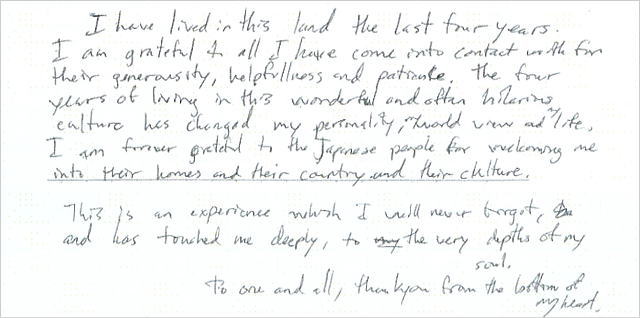 I have lived in this land the last four years.
I am grateful to all I have come into contact with for
their generousity, helpfullness and patience. The four
years of living in this wonderful and often hilarious
culture has changed my personality, my world view and my life.
I am forever grateful to the Japanese people for welcoming me
into their homes and their country and their culture.
This is an experience which I will never forget,
and has touched me deeply, to the very depths of my
soul.
To one and all, thankyou from the bottom of
my heart.